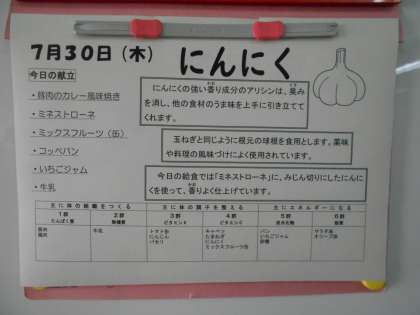 7月30日（木）
にんにく
今日の献立
・豚肉のカレー風味焼き
・ミネストローネ
・ミックスフルーツ（缶）
・コッペパン
・いちごジャム
・牛乳
にんにくの強い香り成分のアリシンは、臭み
を消し、他の食材のうま味を上手に引き立てて
くれます。
玉ねぎと同じように根元の球根を食用とします。薬味
や料理の風味づけによく使用されています。
今日の給食では「ミネストローネ」に、みじん切りにしたにんに
くを使って、香りよく仕上げています。
主に体の組織をつくる 主に体の調子を整える 主にエネルギーになる
1群 2群 3群 4群 5群 6群
たんぱく質 無機質 ビタミンA ビタミンC 炭水化物 脂質
豚肉 牛乳 トマト缶 キャベツ パン サラダ油
にんじん たまねぎ いちごジャム オリーブ油
パセリ にんにく 砂糖
ミックスフルーツ缶